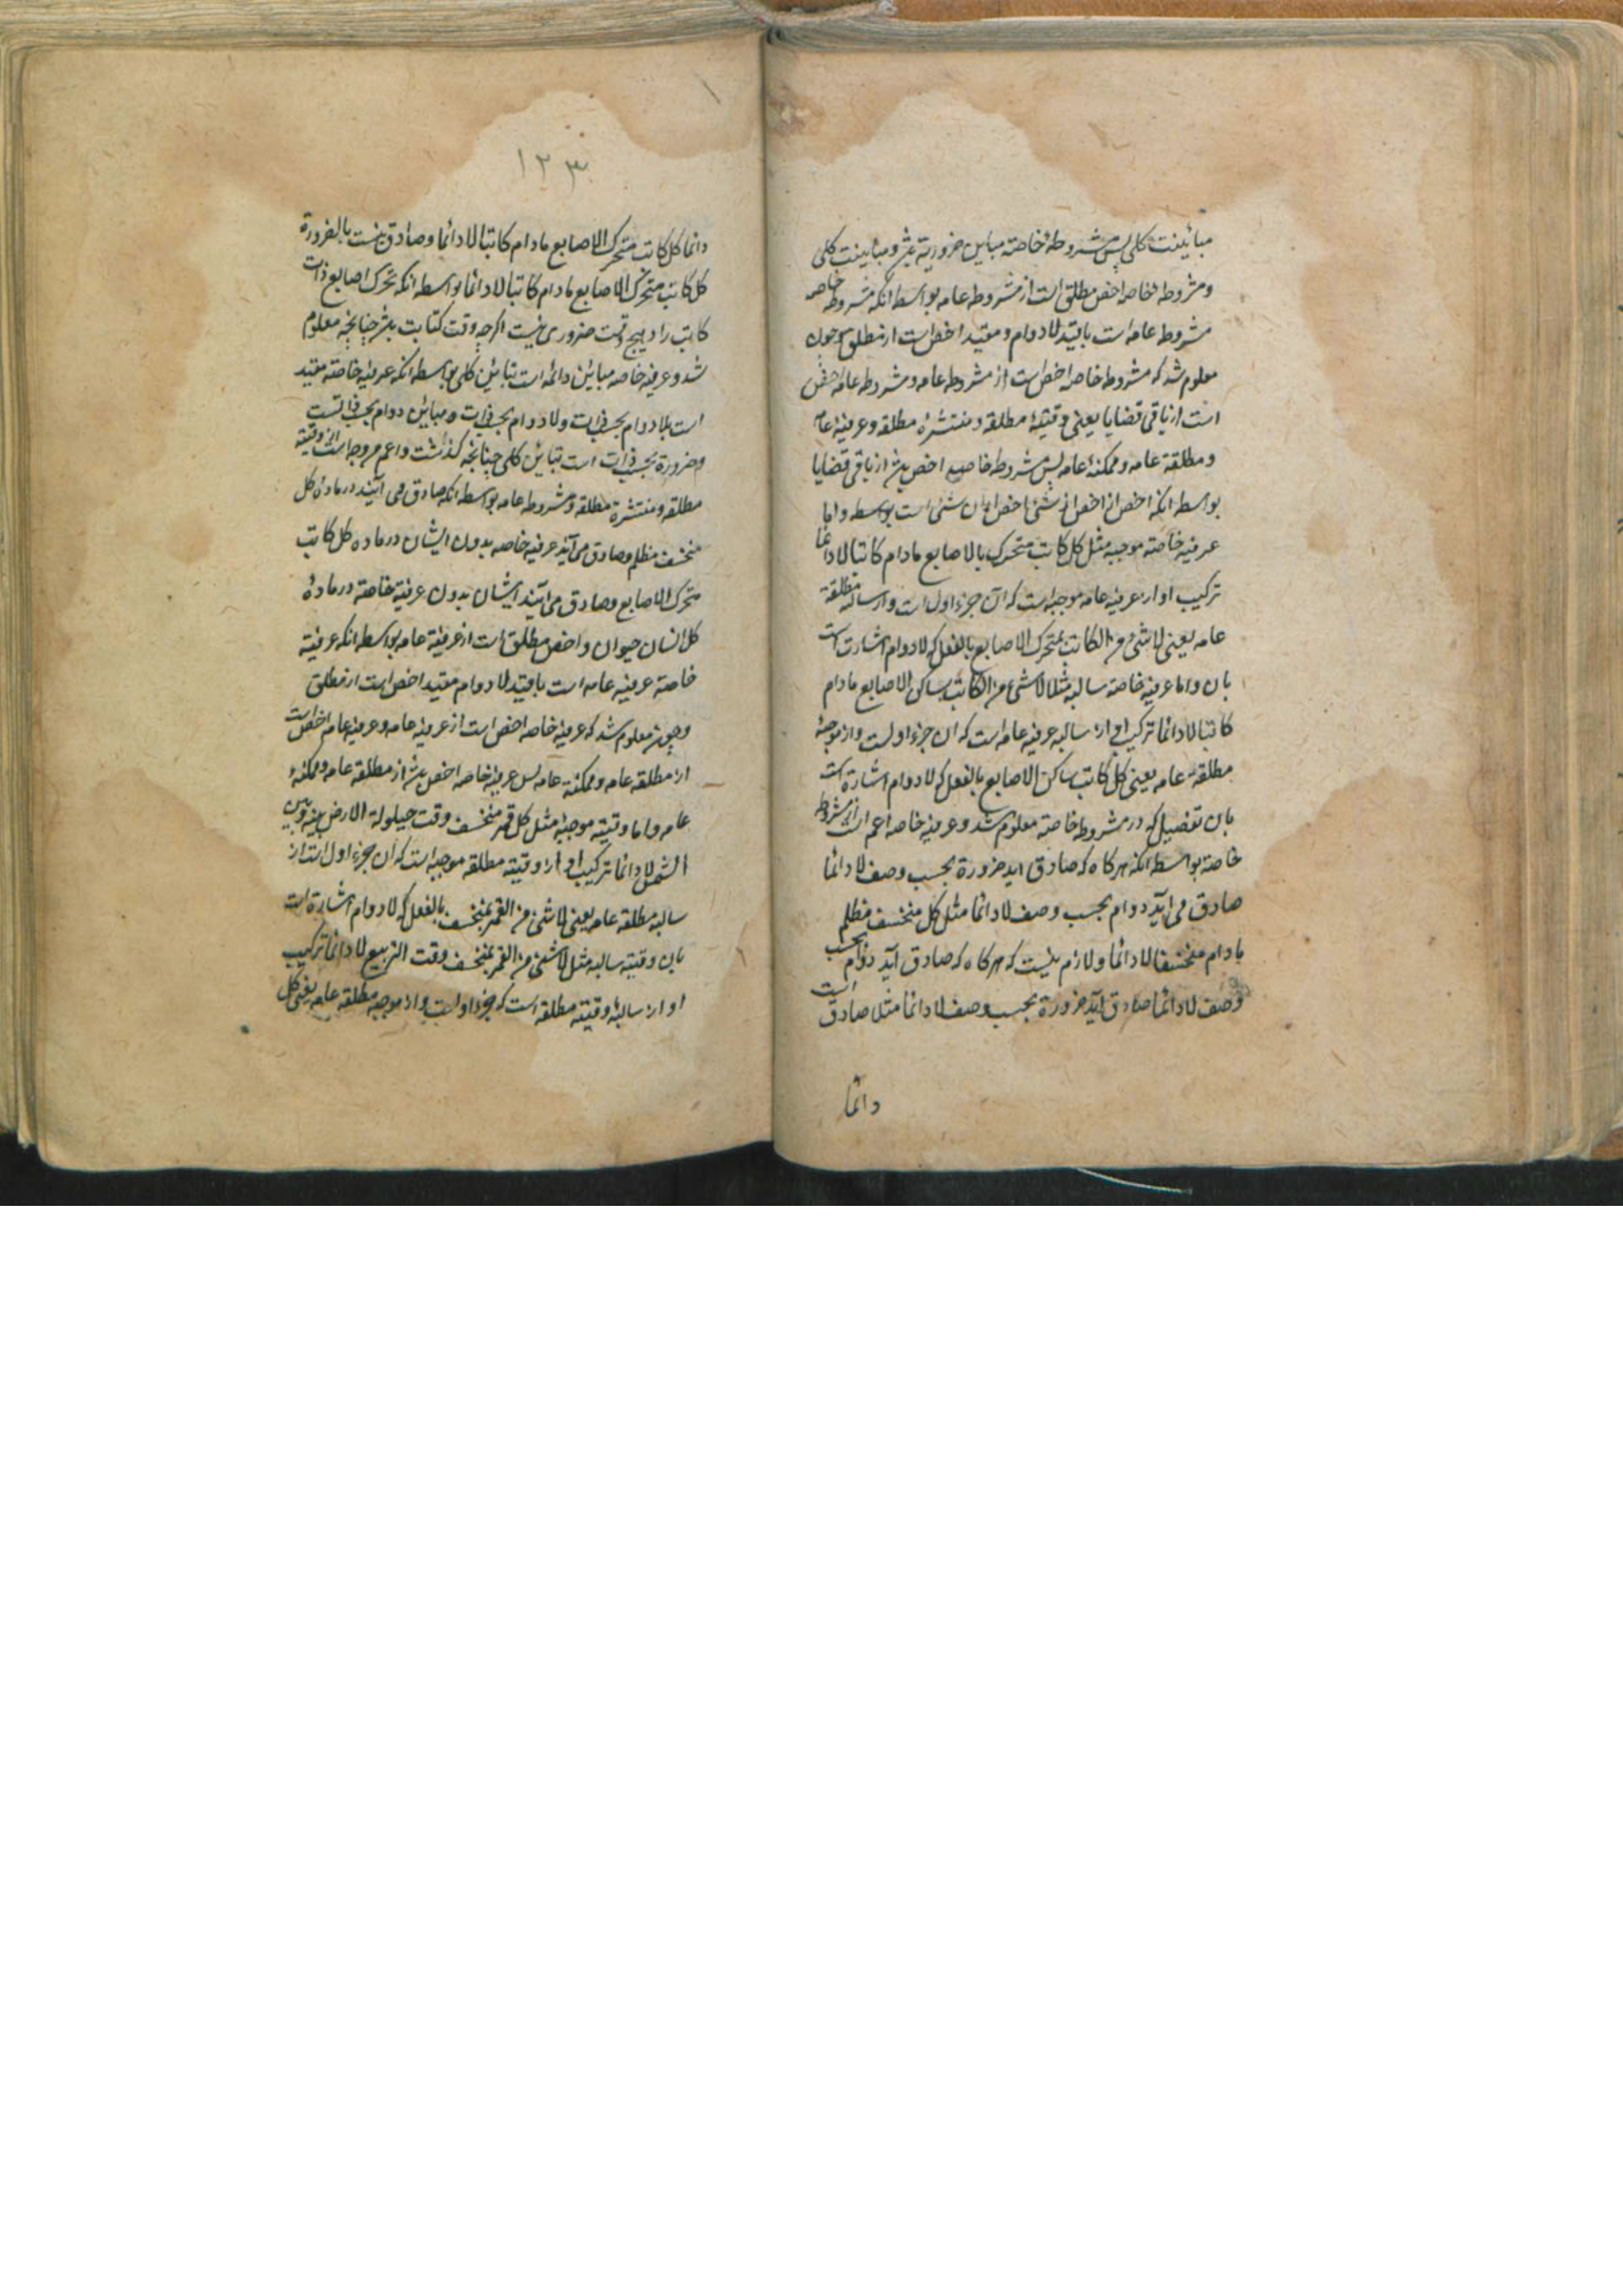 مباینت کلی پس مشروطهٔ خاصه مباین ضروریه بمباینت کلی
ومشروطهٔ خاصه اخص مطلق است از مشروطه عامه بواسطه انکه مشروطه خاصه
مشروطه عامه است باقید لادوام ومقید اخص است از مطلق وچون
معلوم شد که مشروطه خاصه اخص است از مشروطه عامه ومشروطه عامه اخص
است از باقی قضایا یعنی وقتیهٔ مطلقه ومنتشرهٔ مطلقه وعرفیهٔ عامه
ومطلقهٔ عامه وممکنهٔ عامه پس مشروطه خاصه اخص باشد از باقی قضایا
بواسطه انکه اخص از اخص از شئ اخص از ان شئ است واما
عرفیه خاصه موجبه مثل کل کاتب متحرک الاصابع مادام کاتبا لادائما
ترکیب او از عرفیه عامه موجبه است که آن جزء اول است واز سالبه مطلقة
عامه یعنی لاشئ من الکاتب بمتحرک الاصابع بالفعل که لادوام اشارت است
بان واما عرفیه خاصه سالبه مثل لاشئ من الکاتب بساکن الاصابع مادام
کاتبا لادائما ترکیب او از سالبه عرفیه عامه است که ان جزء اولست واز موجبهٔ
مطلقهٔ عامه یعنی کل کاتب ساکن الاصابع بالفعل که لادوام اشارة است
بان تفصیل که در مشروطه خاصه معلوم شد وعرفیه خاصه اعم است از مشروطه
خاصه بواسطه انکه هر کاه که صادق اید ضرورة بحسب وصف لادائما
صادق می آید دوام بحسب وصف لادائما مثل کل منخسف مظلم
مادام منخسفا لادائما ولازم نیست که هر کاه که صادق آید دوام بحسب
وصف لادائما صادق آید ضرورة بحسب وصف لادائما مثلا صادق است
دائما
١٢٣
دائما کل کاتب متحرک الاصابع مادام کاتبا لادائما وصادق نیست بالضرورة
کل کاتب متحرک الاصابع مادام کاتبا لادائما بواسطه انکه تحرک اصابع ذات
کاتب را در هیچ وقت ضروری نیست اکرچه وقت کتابت باشد چنانچه معلوم
شد وعرفیه خاصه مباین دائمه است تباین کلی بواسطه انکه عرفیه خاصه مقید
است بلادوام بحسب ذات ولادوام بحسب ذات مباین دوام بحسب ذاتست
وضرورة بحسب ذات است تباین کلی چنانچه کذشت واعم من وجه است از وقتیه
مطلقه ومنتشرة مطلقه ومشروطه عامه بواسطه انکه صادق می آیند در ماده کل
منخسف مظلم وصادق می آید عرفیه خاصه بدون ایشان در ماده کل کاتب
متحرک الاصابع وصادق می آیند ایشان بدون عرفیه خاصه در مادهٔ
کل انسان حیوان واخص مطلق است از عرفیهٔ عامه بواسطه انکه عرفیه
خاصه عرفیه عامه است باقید لادوام مقید اخص است از مطلق
وچون معلوم شد که عرفیهٔ خاصه اخص است از عرفیه عامه وعرفیه عامه اخص است
از مطلقه عامه وممکنهٔ عامه پس عرفیهٔ خاصه اخص باشد از مطلقه عامه وممکنهٔ
عامه واما وقتیه موجبه مثل کل قمر منخسف وقت حیلولة الارض بینه وبین
الشمس لادائما ترکیب او از وقتیه مطلقه موجبه است که ان جزء اول است از
سالبه مطلقه عامه یعنی لاشئ من القمر بمنخسف بالفعل که لادوام اشارة است
بان وقتیه سالبه مثل لاشئ من القمر بمنخسف وقت التربیع لادائما ترکیب
او از سالبهٔ وقتیه مطلقه است که جزء اولست واز موجبه مطلقه عامه یعنی کل